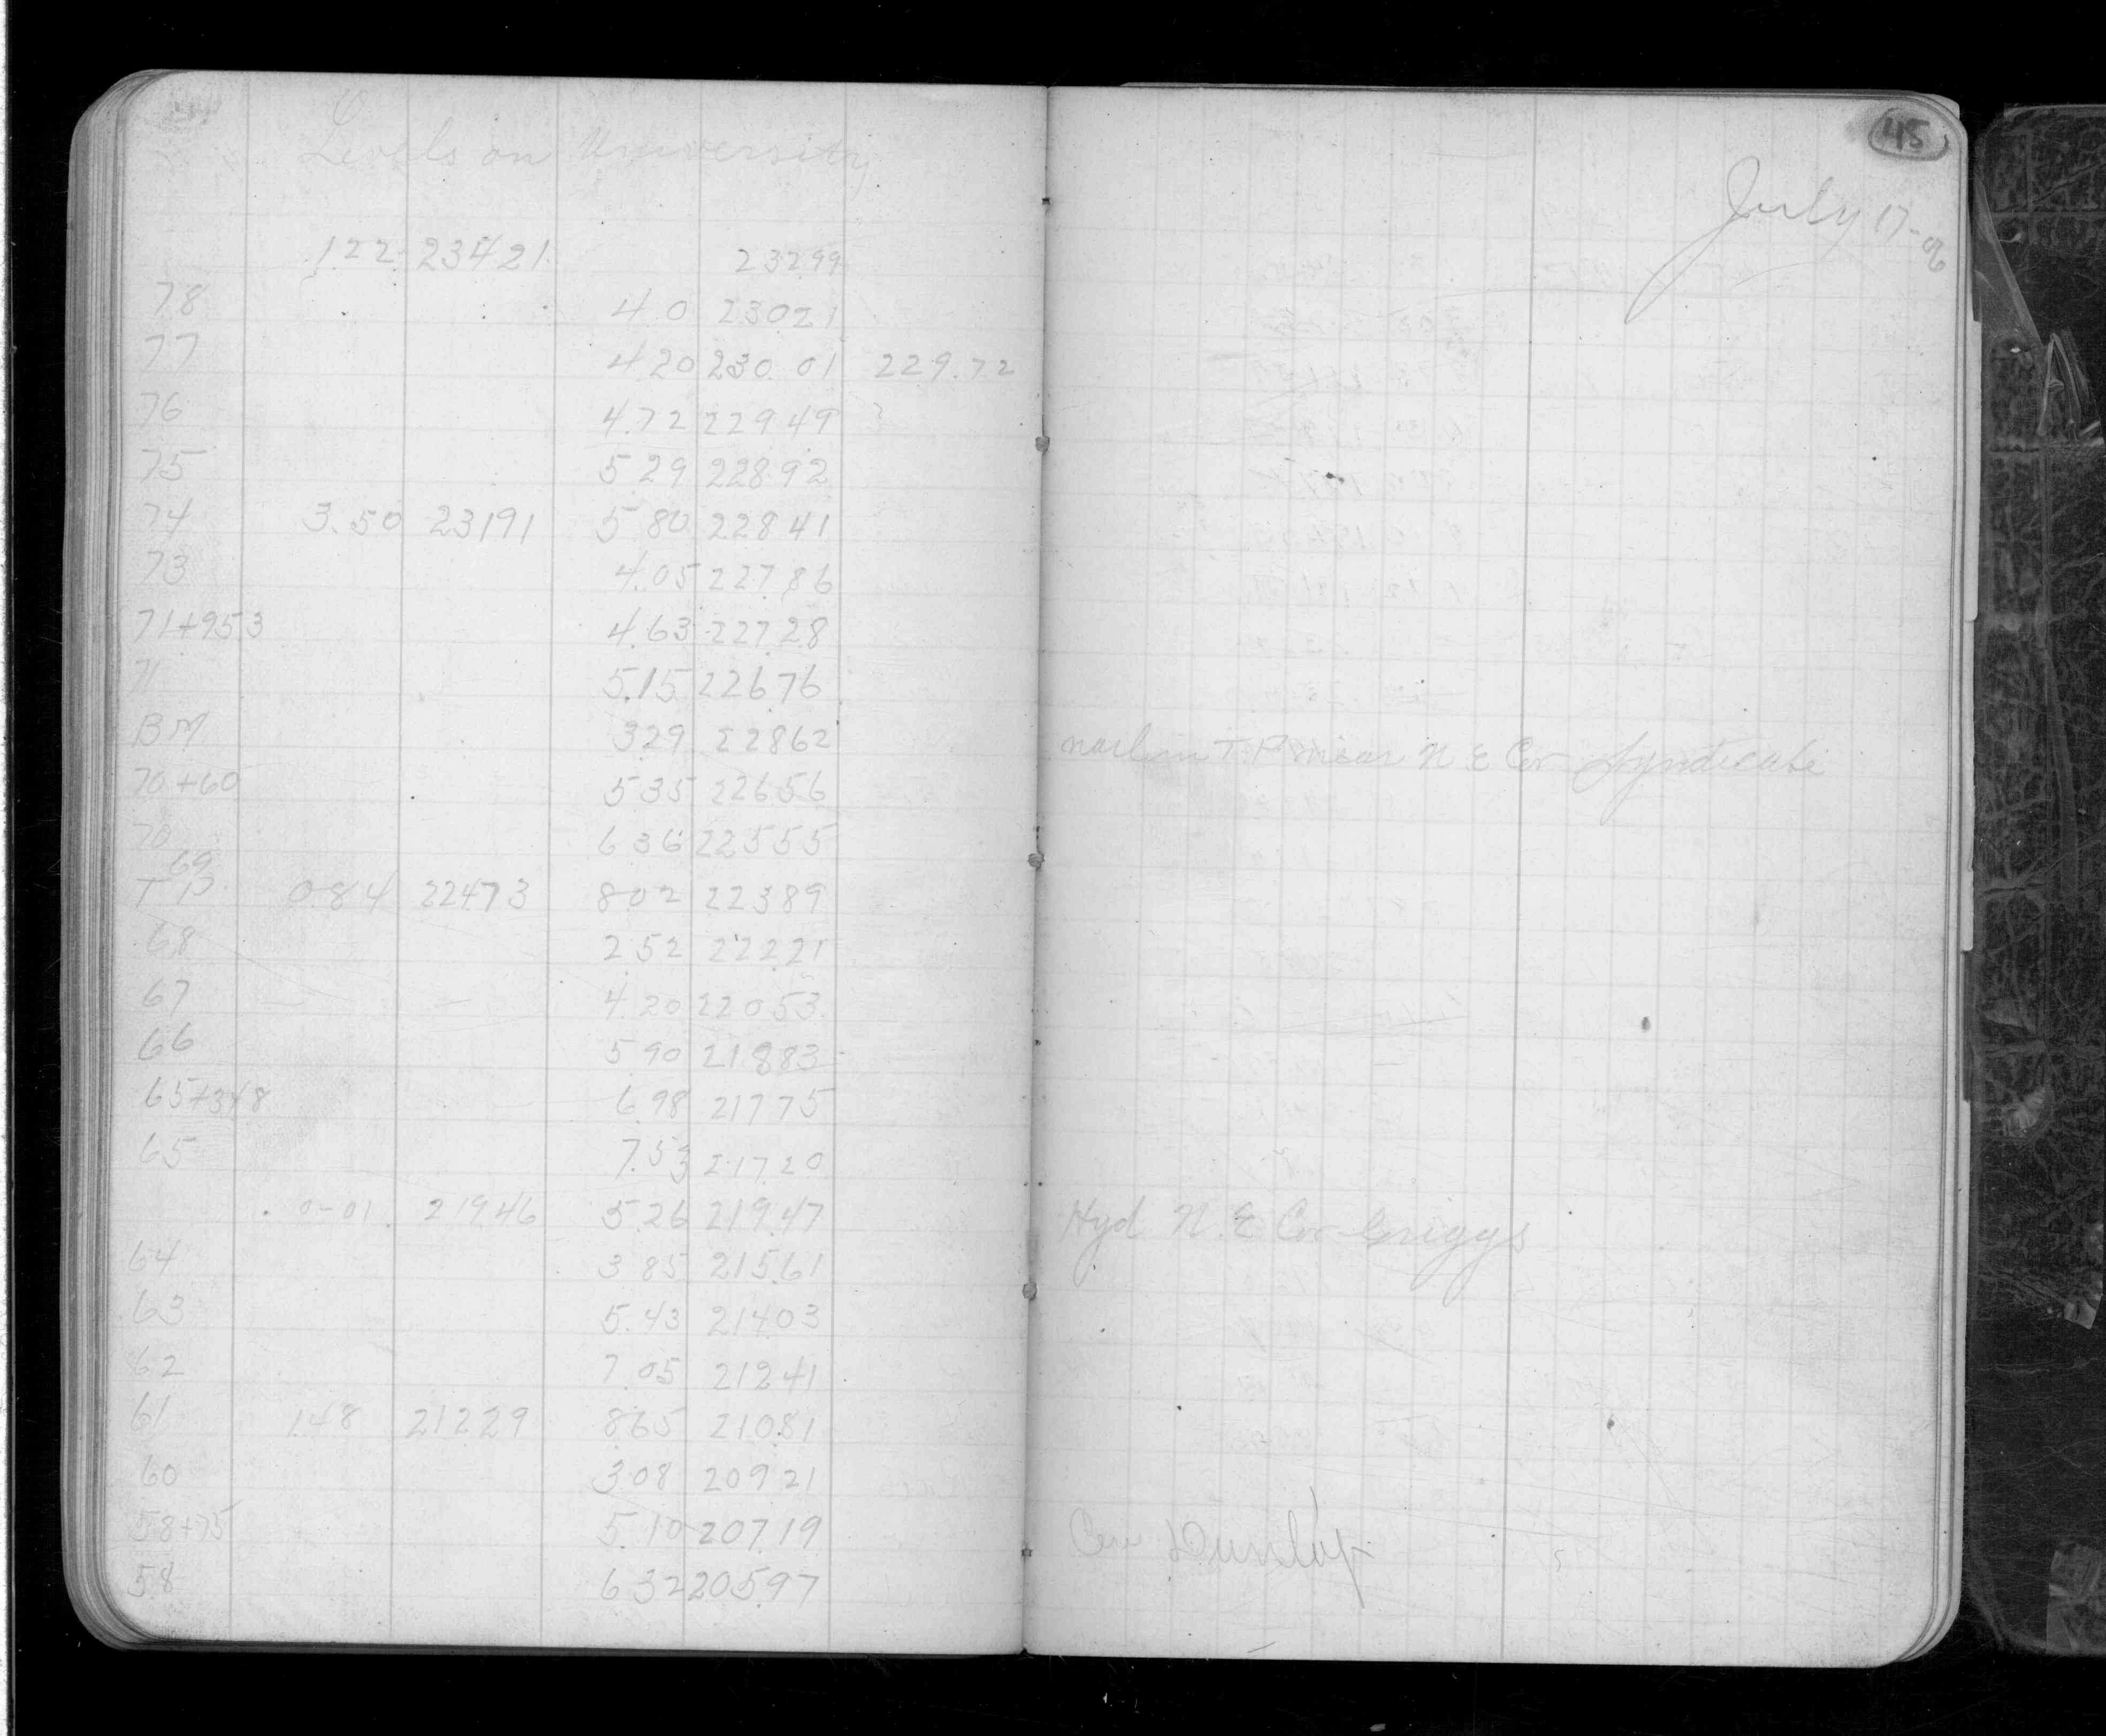 Levels on University
1 22 234 21 232 99
78 4 0 230 21
77 4 20 230. 01 229.72
76 4.72 229 49
75 5 29 228 92
74 3. 50 231 91 5 80 228 41
73 4.05 227 86
71+95 3 4.63 227 28
71 5.15 226 76
B M 3 29 228 62
70+60 5 35 226 56
70 6 36 225 55
69
T P 0 84 224 73 8 02 223 89
68 2 52 222 21
67 4 20 220 53
66 5 90 218 83
65+34 8 6 98 217 75
65 7.53 217 20
0-01 219 46 5.26 219.47
64 3 85 215.61
63 5.43 214 03
62 7.05 212 41
61 1.48 212 29 8.65 210.81
60 3 08 209 21
58+75 5.10 207 19
58 6 32 205.97
45
July 17-06
nail in T.P. near N E Cor Syndicate
Hyd N. E Cor Griggs
Cen Dunlap